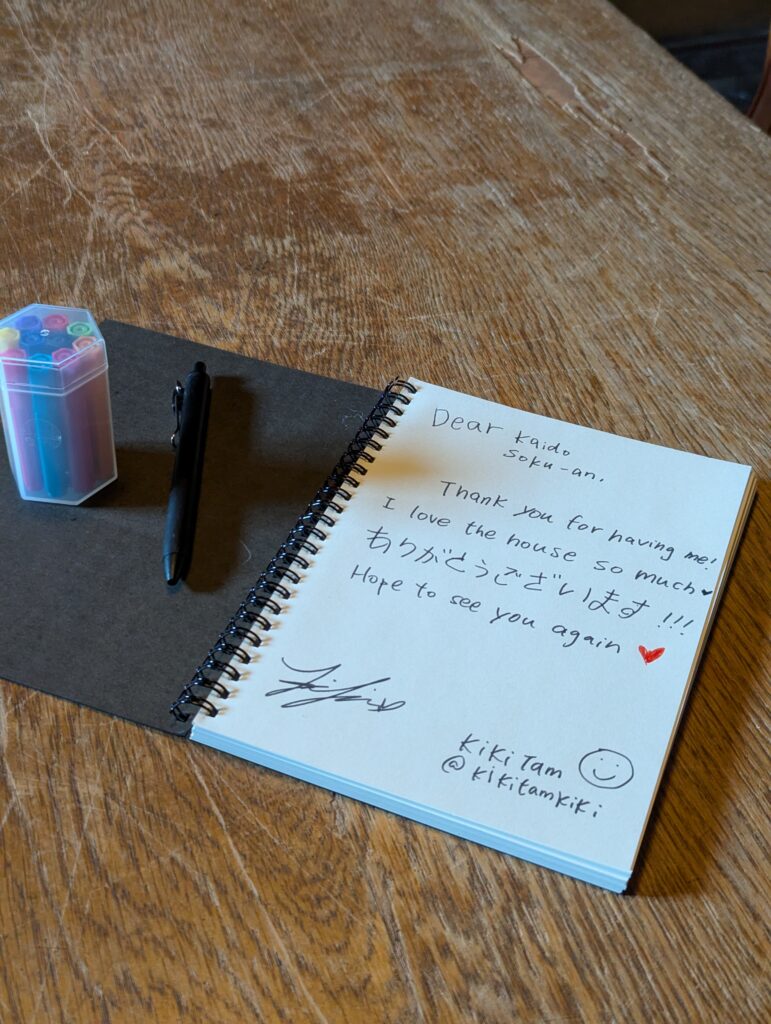 Dear Kaido
Soku-an.
Thank you for having me!
I love the house so much♥
ありがとうございます!!!
Hope to see you again ♥
Kiki Tam
@kikitamkiki